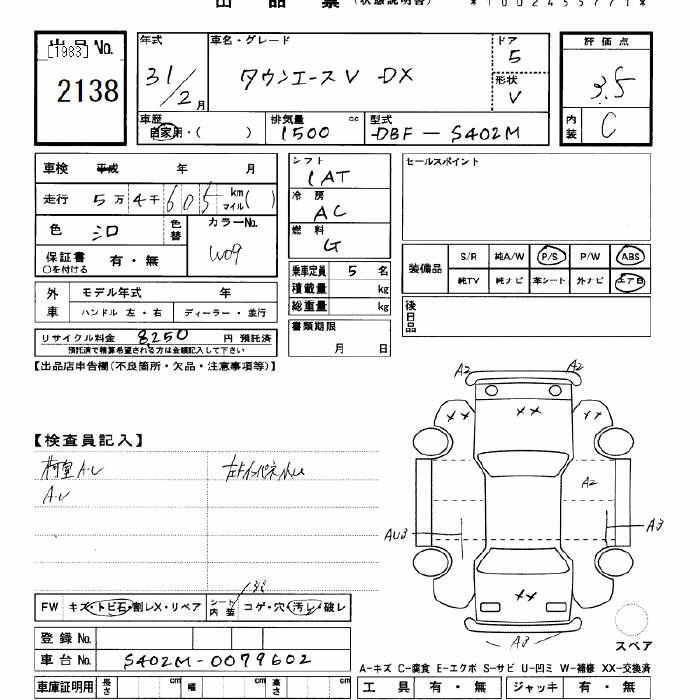 出 品 票 (状態説明書)
出品No.
[1983]
2138
年式
31/2月
車名・グレード
タウンエースV DX
ドア
5
形状
V
評価点
3.5
内装
C
車歴
自家用・( )
排気量 cc
1500
型式
DBF-S402M
車検 平成 年 月
走行 5万4千605 km マイル( )
色 シロ
色替
カラーNo.
W09
保証書
○を付ける
有・無
シフト
1AT
冷房
AC
燃料
G
乗車定員 5 名
積載量 kg
総重量 kg
書類期限
月 日
セールスポイント
装備品
S/R 純A/W P/S P/W ABS
純TV 純ナビ 革シート 外ナビ エアB
後日品
外車
モデル年式 年
ハンドル 左・右 ディーラー・並行
リサイクル料金 8250 円 預託済
預託済で精算希望される方は金額記入して下さい
【出品店申告欄(不良箇所・欠品・注意事項等)】
【検査員記入】
荷室A.U
A.U
A2 A2
XX XX XX
A2
AU3
A3
XX
A3
スペア
FW キズ・トビ石・割レX・リペア
シート内装 コゲ・穴・汚レ・破レ
登録No.
車台No. S402M-0079602
車庫証明用 長さ cm 幅 cm 高さ cm
A-キズ C-腐食 E-エクボ S-サビ U-凹ミ W-補修 XX-交換済
工具 有・無 ジャッキ 有・無